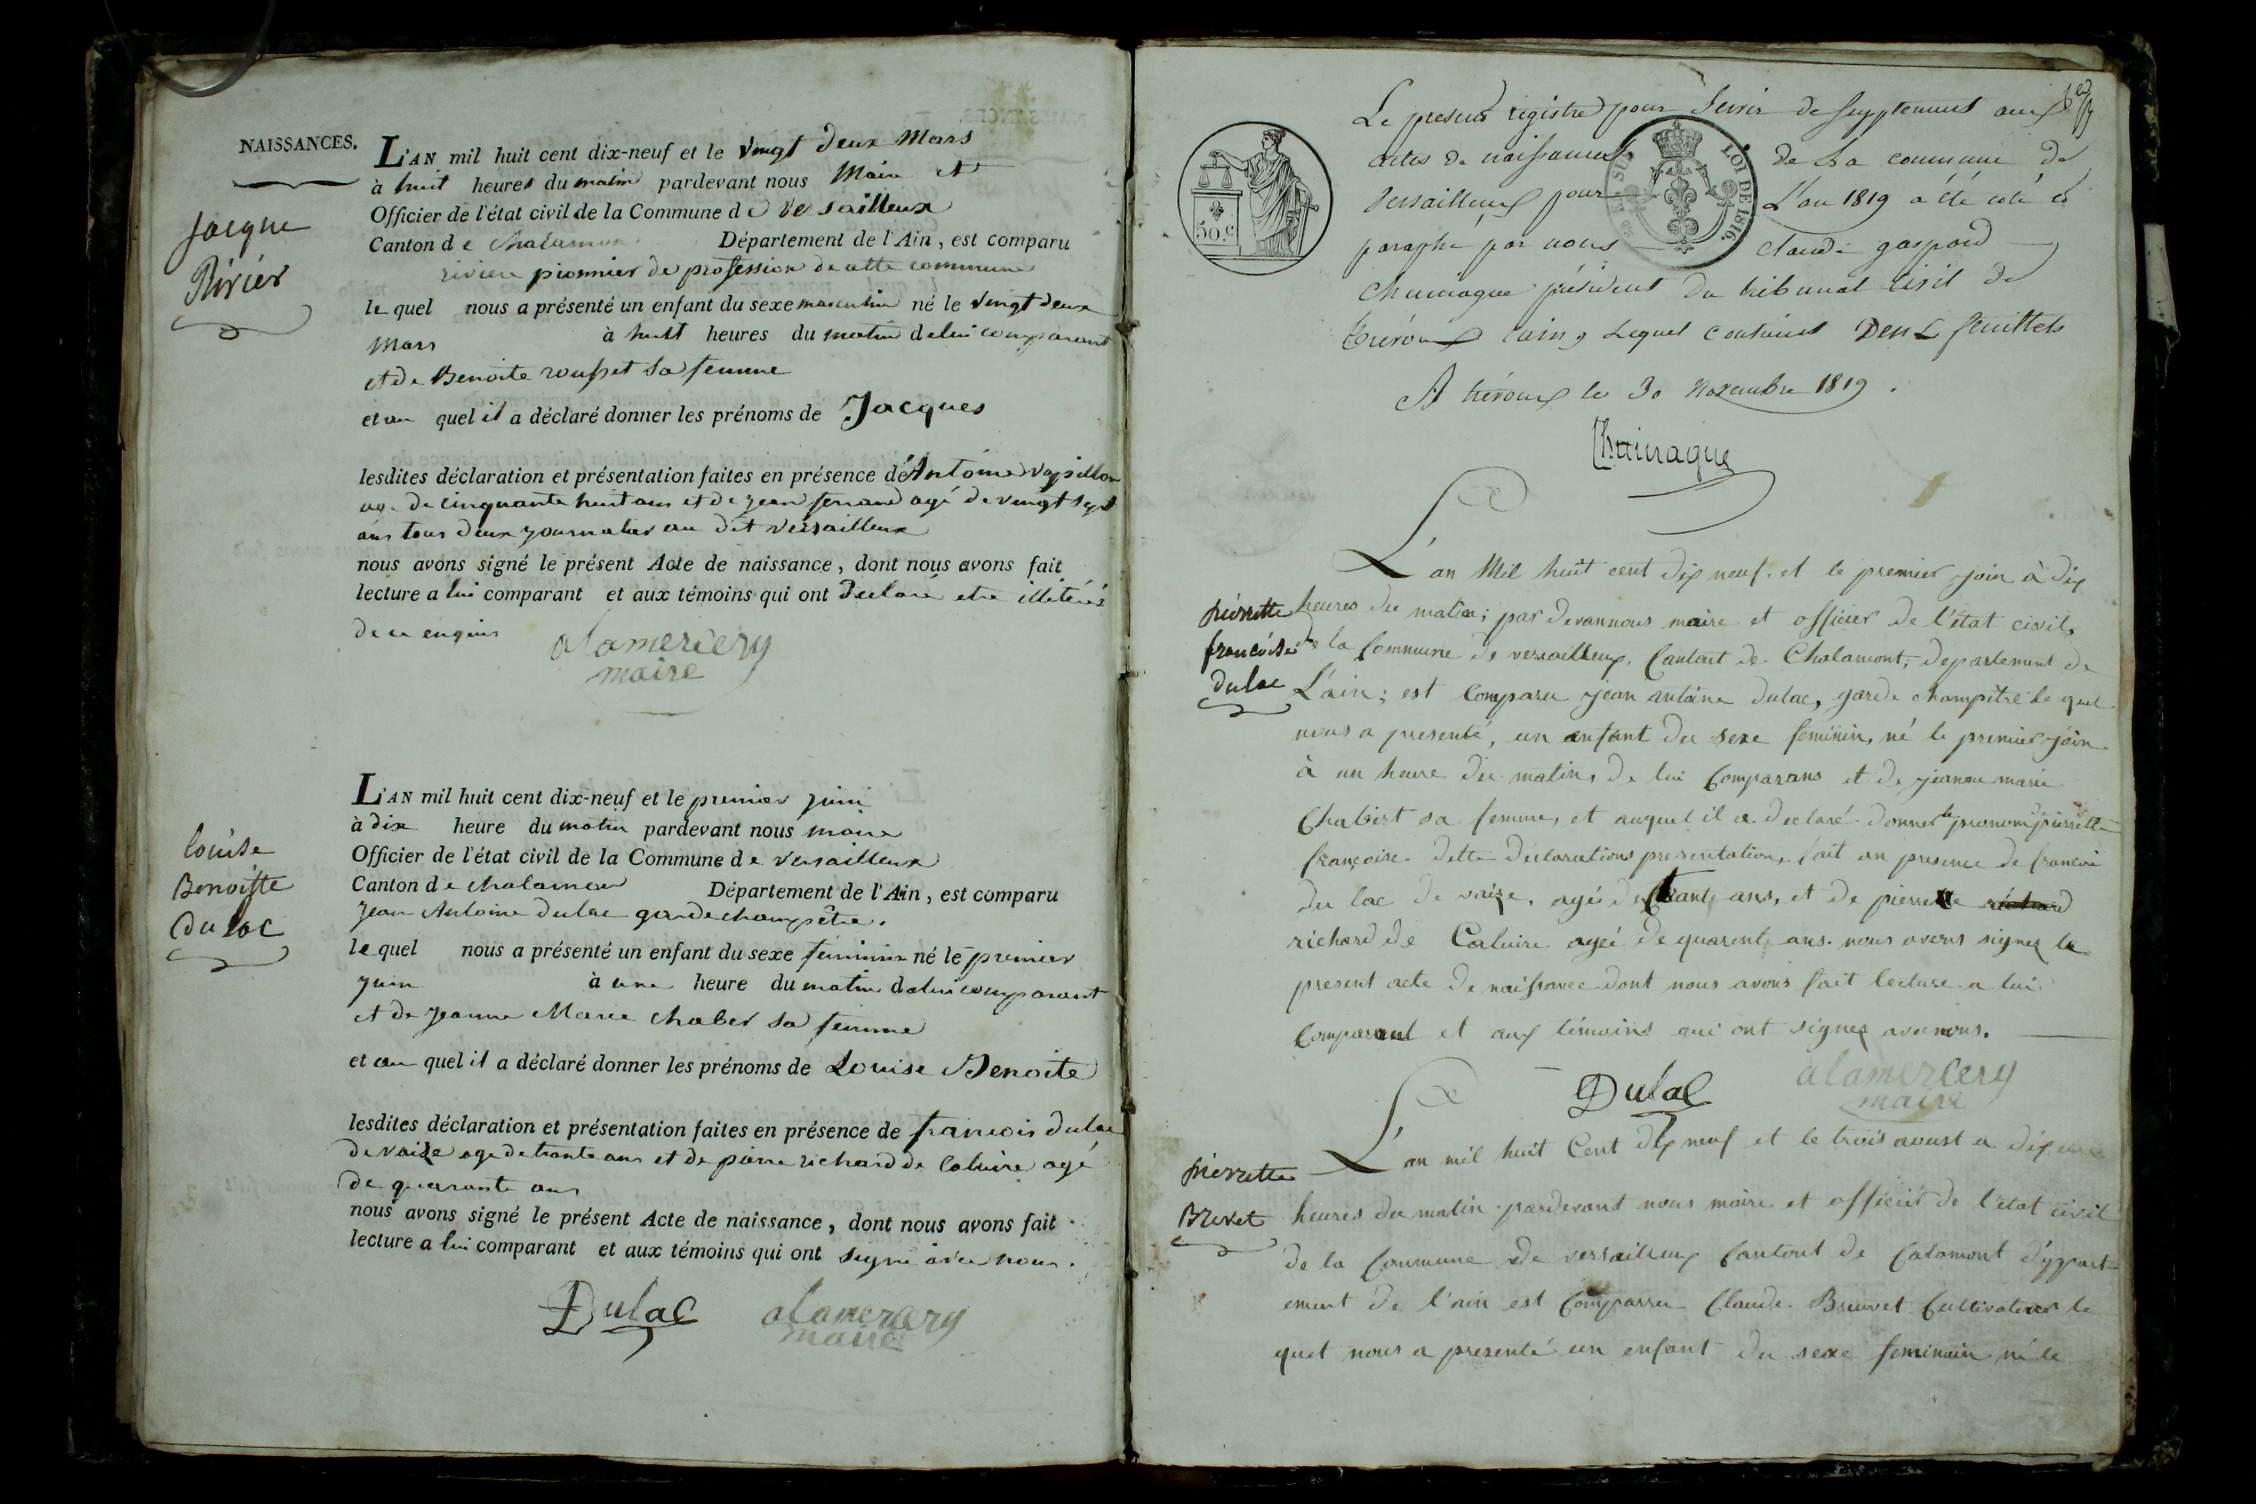 NAISSANCES.
Jacque
Rivier
L'AN mil huit cent dix-neuf et le vingt deux Mars
à huit heures du matin pardevant nous Maire et
Officier de l'état civil de la Commune de Versailleux
Canton de chalamon Département de l'Ain, est comparu
riviere pionnier de profession de cette commune
le quel nous a présenté un enfant du sexe masculin né le vingt deux
Mars à huit heures du matin de lui comparant
et de Benoite rousset sa femme
et au quel il a déclaré donner les prénoms de Jacques
lesdites déclaration et présentation faites en présence de Antoine vapillon
age de cinquante huit ans et de jean ferrand agé de vingt sept
ans tous deux journalier au dit versailleux
nous avons signé le présent Acte de naissance, dont nous avons fait
lecture a lui comparant et aux témoins qui ont declaré etre illiterés
de ce enquis
alamercery
maire
Louise
Benoiste
du lac
L'AN mil huit cent dix-neuf et le premier juin
à dix heure du matin pardevant nous maire
Officier de l'état civil de la Commune de versailleux
Canton de chalamon Département de l'Ain, est comparu
Jean Antoine dulac garde champêtre.
le quel nous a présenté un enfant du sexe feminin né le premier
juin à une heure du matin de lui comparant
et de Jeanne Marie chaber sa femme
et au quel il a déclaré donner les prénoms de Louise Benoite
lesdites déclaration et présentation faites en présence de francois dulac
de vaize age de trante ans et de pierre richard de caluire agé
de quarante ans
nous avons signé le présent Acte de naissance, dont nous avons fait
lecture a lui comparant et aux témoins qui ont signé avec nous.
Dulac alamercery
maire
Le present registre pour servir de supplement aux
actes de naissances de la commune de
Versailleux pour L'an 1819 a été coté et
paraphé par nous claude gaspard
Chuinague président du tribunal civil de
trévoux (ain) Lequel contient Deux feuillets
A trévoux le 30 Novembre 1819.
50. c
LOI DE 1816.
Chuinague
pierrette
francoise
dulac
L'an Mil huit cent dix neuf. et le premier join à dix
heures du matin; par devannous maire et officier de l'état civil,
de la Commune de versailleux, Cantont de Chalamont, departement de
L'ain; est Comparu jean antoine dulac, garde champêtre le quel
nous a presenté, un anfant du sexe feminin, né le premier join
à un heure du matin, de lui Comparans et de jeanne marie
Chabert sa femme, et auquel il a declaré donner le pronom pierrette
françoise. dette declarations presentation, fait an presence de francoi
du lac de vaize, agé de trante ans, et de pierre richard
richard de Caluire ageé de quarente ans. nous avons signez le
present acte de naissance dont nous avons fait lecture a lui
Comparant et aux témoins qui ont signez avec nous.
Dulac alamercery
maire
pierrette
Brevet
L'an mil huit Cent dix neuf et le trois aoust a dix
heures du matin pardevant nous maire et officier de l'etat civil
de la Commune de versailleux Cantont de Calamont déppart
ement de l'ain est Comparru Claude Breuvet Cultivateur le
quel nous a presenté un enfant du sexe feminain né le